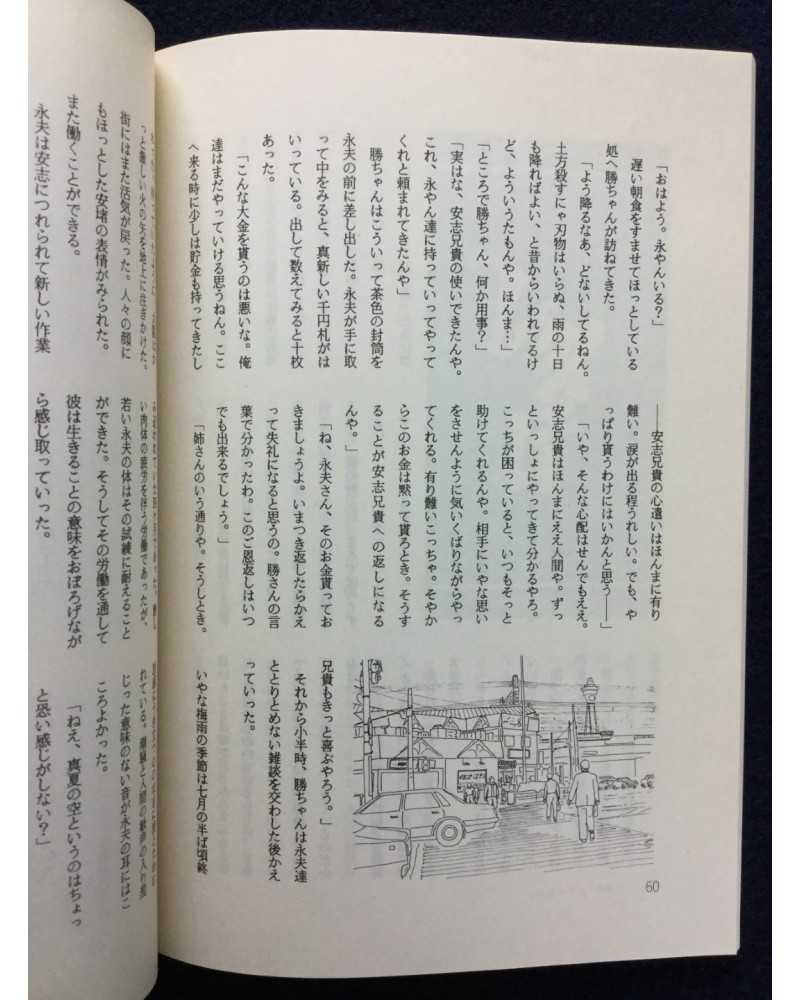 「おはよう。永やんいる?」
遅い朝食をすませてほっとしている
処へ勝ちゃんが訪ねてきた。
「よう降るなあ、どないしてるねん。
土方殺すにゃ刃物はいらぬ、雨の十日
も降ればよい、と昔からいわれてるけ
ど、よういうたもんや。ほんま…」
「ところで勝ちゃん、何か用事?」
「実はな、安志兄貴の使いできたんや。
これ、永やん達に持っていってやって
くれと頼まれてきたんや」
勝ちゃんはこういって茶色の封筒を
永夫の前に差し出した。永夫が手に取
って中をみると、真新しい千円札がは
いっている。出して数えてみると十枚
あった。
「こんな大金を貰うのは悪いな。俺
達はまだやっていける思うねん。ここ
へ来る時に少しは貯金も持ってきたし
――安志兄貴の心遣いはほんまに有り
難い。涙が出る程うれしい。でも、や
っぱり貰うわけにはいかんと思う――」
「いや、そんな心配はせんでもええ。
安志兄貴はほんまにええ人間や。ずっ
といっしょにやってきて分かるやろ。
こっちが困っていると、いつもそっと
助けてくれるんや。相手にいやな思い
をさせんように気いくばりながらやっ
てくれる。有り難いこっちゃ。そやか
らこのお金は黙って貰ろとき。そうす
ることが安志兄貴への返しになる
んや。」
「ね、永夫さん、そのお金貰ってお
きましょうよ。いまつき返したらかえ
って失礼になると思うの。勝さんの言
葉で分かったわ。このご恩返しはいつ
でも出来るでしょう。」
「姉さんのいう通りや。そうしとき。
兄貴もきっと喜ぶやろう。」
それから小半時、勝ちゃんは永夫達
ととりとめない雑談を交わした後かえ
っていった。
いやな梅雨の季節は七月の半ば頃終
60
っと厳しい火の矢を地上に注ぎかけた。
街にはまた活気が戻った。人々の顔に
もほっとした安堵の表情がみられた。
また働くことができる。
永夫は安志につれられて新しい作業
い肉体の疲労を伴う労働であったが、
若い永夫の体はその試練に耐えること
ができた。そうしてその労働を通して
彼は生きることの意味をおぼろげなが
ら感じ取っていった。
れている。
じった意味のない音が永夫の耳にはこ
ころよかった。
「ねえ、真夏の空というのはちょっ
と恐い感じがしない?」